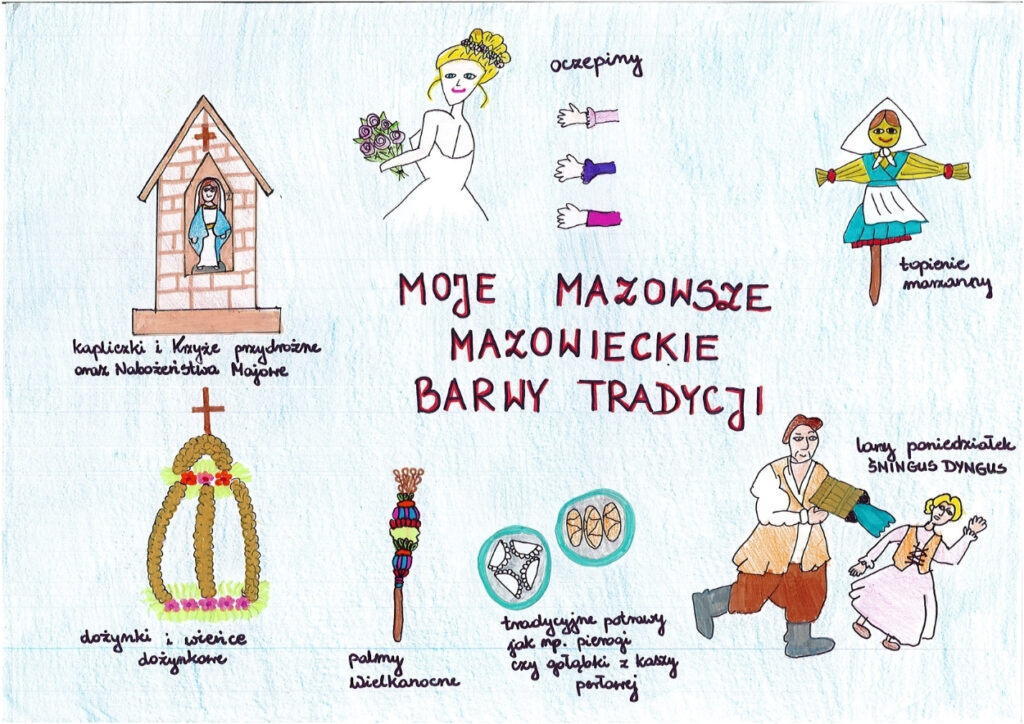 oczepiny
topienie
marzanny
MOJE MAZOWSZE
MAZOWIECKIE
BARWY TRADYCJI
kapliczki i Krzyże przydrożne
oraz Nabożeństwa Majowe
lany poniedziałek
ŚMINGUS DYNGUS
dożynki i wieńce
dożynkowe
palmy
Wielkanocne
tradycyjne potrawy
jak np. pierogi
czy gołąbki z kaszy
perłowej